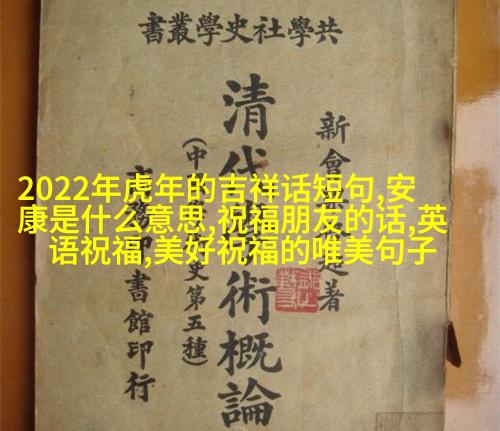 書叢學史社學共
清代
術概論
新會
著
(中
史第五種)
書館印行
2022年虎年的吉祥话短句,安
康是什么意思,祝福朋友的话,英
语祝福,美好祝福的唯美句子